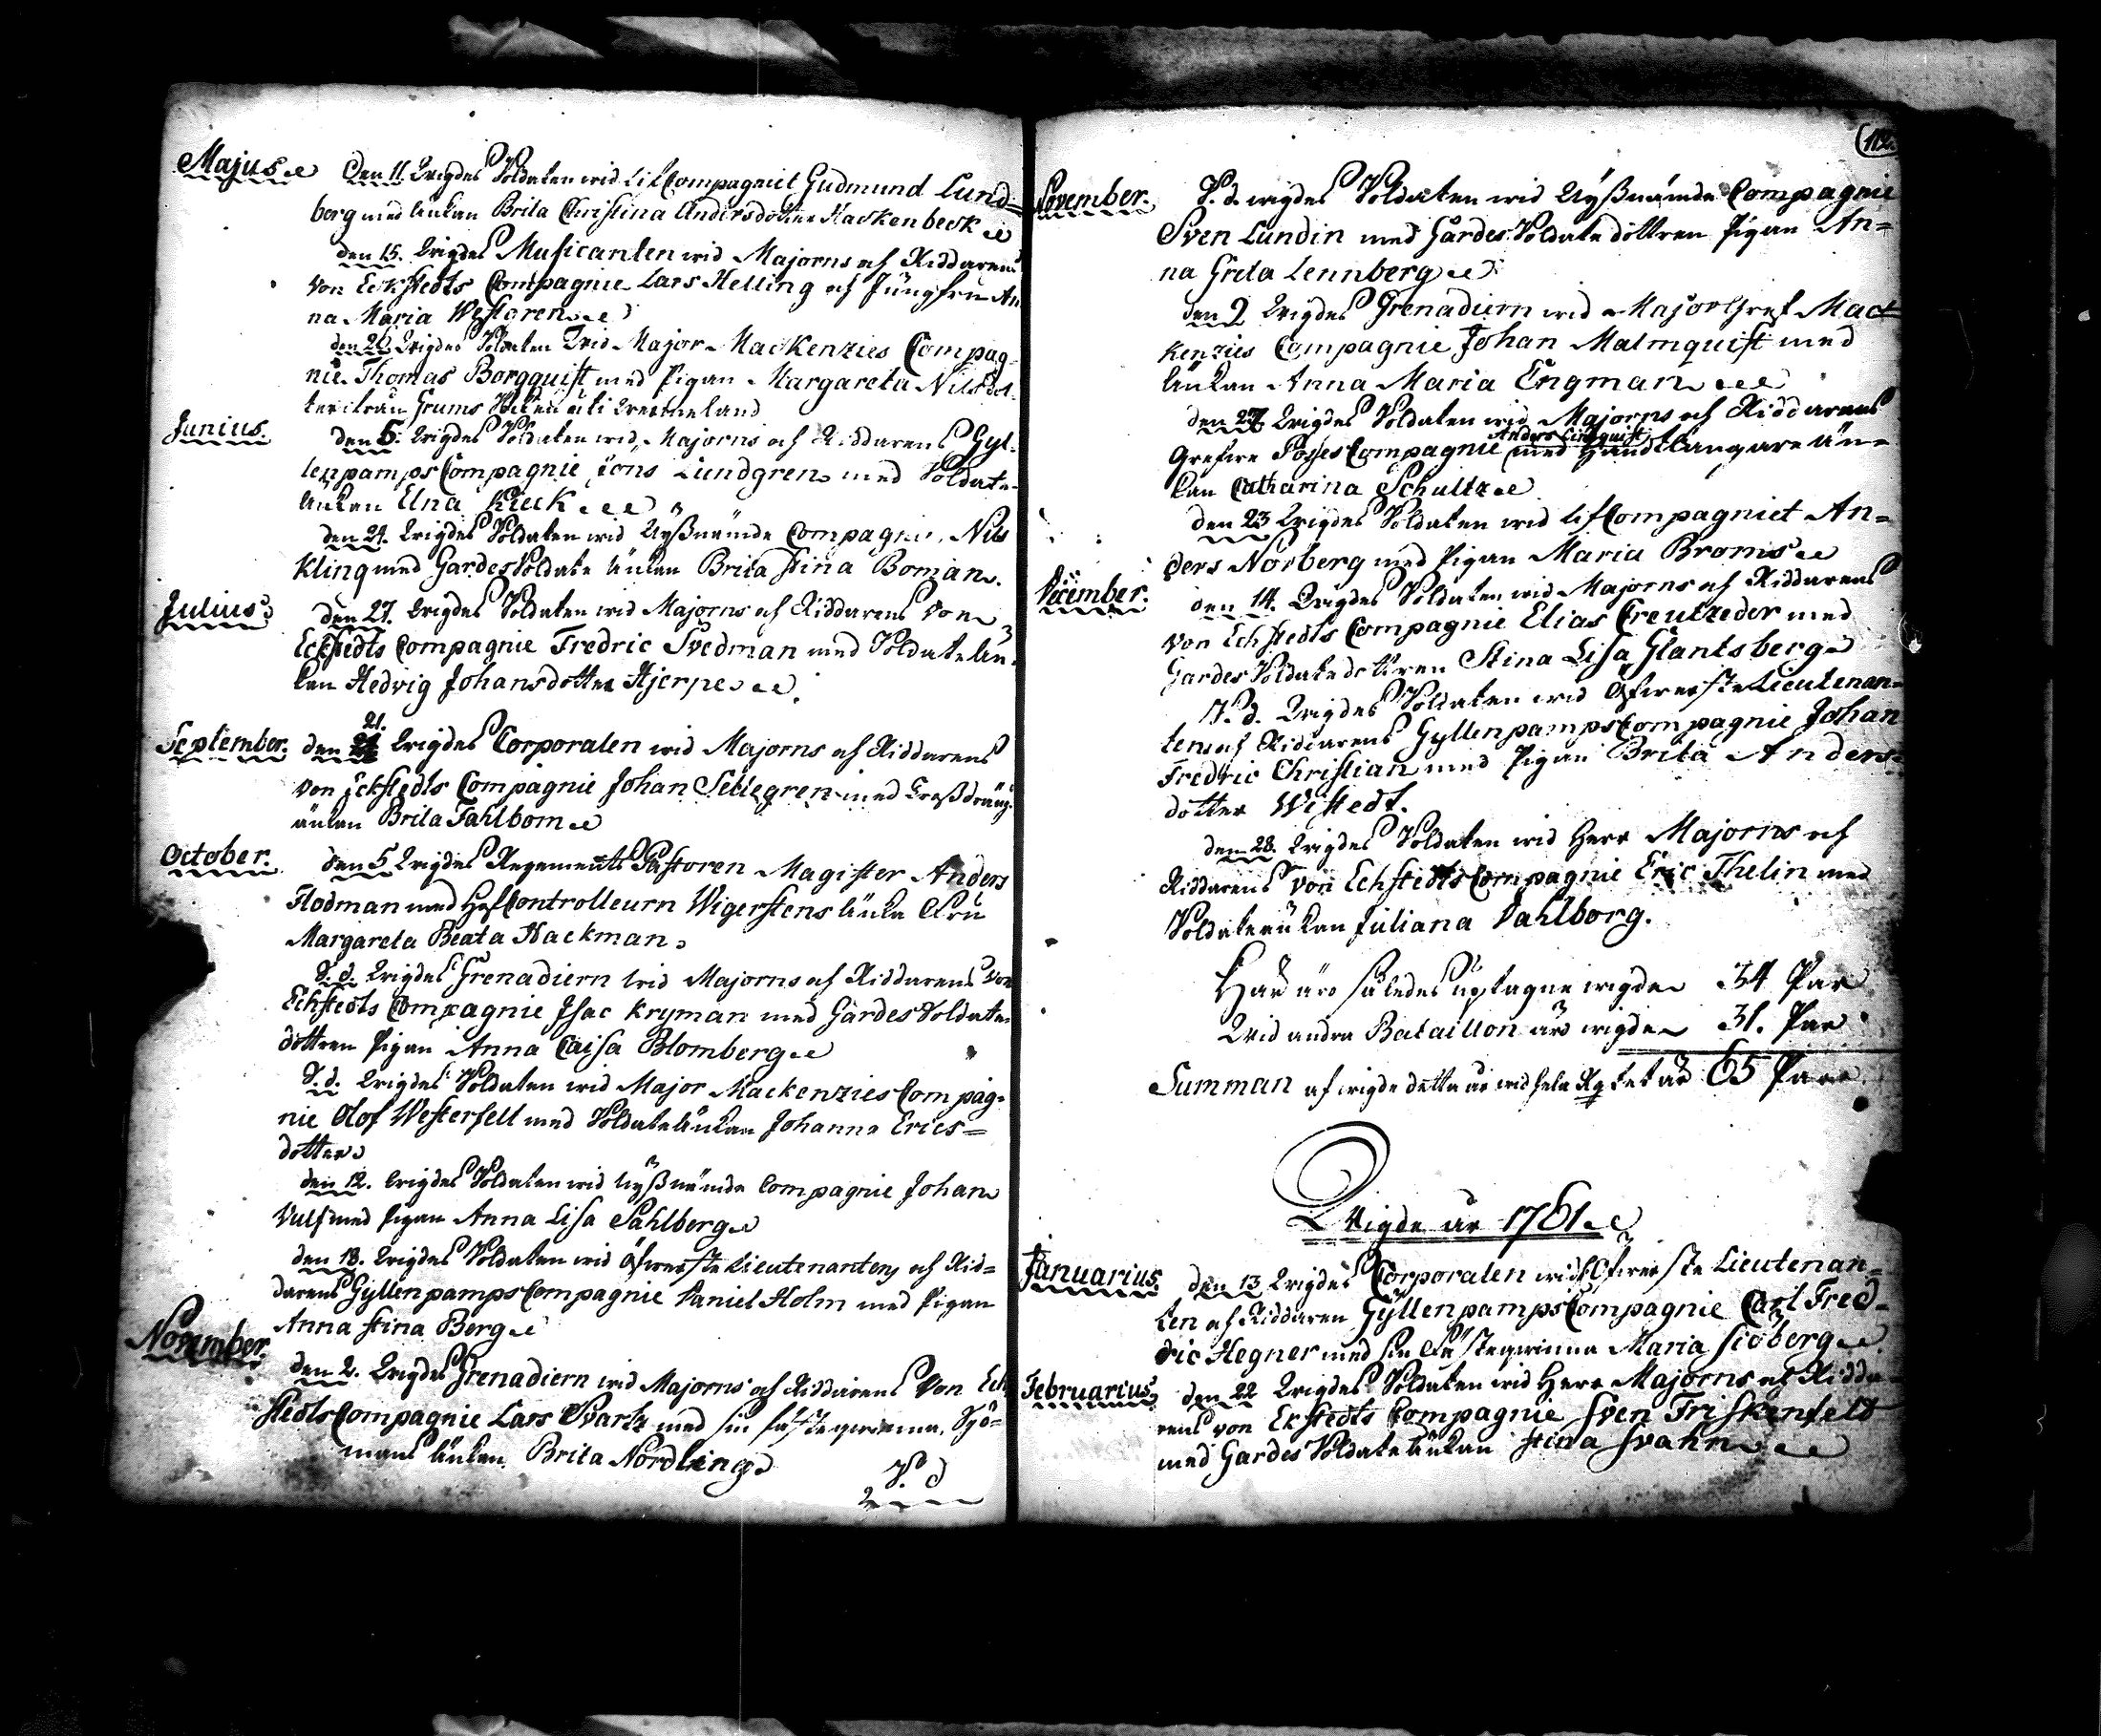 Majus. den 11. Wigdes Soldaten wid Lif Compagniet Gudmund Lund=
berg med änkan Brita Christina Andersdotter Hackenbeck
den 15. Wigdes Musicanten wid Majorns och Riddarens
von Eckstedts Compagnie Lars Helling och Jungfru An
na Maria Westoren
den 26 Wigdes Soldaten wid Major Mackenzies Compag=
nie Thomas Borgquist med Pigan Margareta Nilsdot=
ter ifrån Grums Socken uti Wermeland
Junius. den 5. Wigdes Soldaten wid Majorns och Riddarens Gyl=
lenpamps Compagnie Jöns Lundgren med Soldate=
änkan Elna Kieck
den 29. Wigdes Soldaten wid Nyßnämde Compagnie, Nils
Kling med Gardes Soldate änkan Brita Stina Boman.
Julius. den 27. Wigdes Soldaten wid Majorns och Riddarens Von
Eckstedts Compagnie Fredric Svedman med Soldate än=
kan Hedvig Johansdotter Hjerpe
September. den 21. Wigdes Corporalen wid Majorns och Riddarens
von Eckstedts Compagnie Johan Sellegren med Troßdräng
änkan Brita Fahlbom
October. den 5 Wigdes Regements Pastoren Magister Anders
Flodman med Hof Controlleurn Wigerstens änka Fru
Margareta Beata Hackman
S. d. Wigdes Grenadiern wid Majorns och Riddarens von
Echstedts Compagnie Isac Kryman med Gardes Soldate
dottren Pigan Anna Caisa Blomberg
S. d. Wigdes Soldaten wid Major Mackenzies Compag=
nie Olof Westerfelt med Soldate änkan Johanna Erics=
dotter
den 12. Wigdes Soldaten wid Nyßnämde Compagnie Johan
Vulf med Pigan Anna Lisa Sahlberg
den 18. Wigdes Soldaten wid Öfwerste Lieutenantens och Rid=
darens Gyllenpamps Compagnie Daniel Holm med Pigan
Anna Stina Berg
November. den 2. Wigdes Grenadiern wid Majorns och Riddarens Von Ech
stedts Compagnie Lars Svartz med sin fästeqwinna, Sjö=
mans änkan Brita Nordling
S. d
112.
November. S. d. wigdes Soldaten wid Nyßnämde Compagnie
Sven Lundin med Gardes Soldate dottren Pigan An=
na Greta Lennberg
den 9 Wigdes Grenadiern wid Major Gref Mac=
kenzies Compagnie Johan Malmquist med
änkan Anna Maria Engman
den 27 Wigdes Soldaten wid Majorns och Riddarens
Anders Lindquist
Grefwe Posses Compagnie med Handtlangare än=
kan Catharina Schultz
den 23 Wigdes Soldaten wid Lif Compagniet An=
ders Norberg med Pigan Maria Broms
December. den 14. Wigdes Soldaten wid Majorns och Riddarens
von Echstedts Compagnie Elias Creutzeder med
Gardes Soldatedottren Stina Lisa Glantsberg
S. d. Wigdes Soldaten wid Öfwerste Lieutenan=
tens och Riddarens Gyllenpamps Compagnie Johan
Fredric Christian med Pigan Brita Anders=
dotter Wistedt.
den 28. Wigdes Soldaten wid Herr Majorns och
Riddarens von Echstedts Compagnie Eric Thelin med
Soldate änkan Juliana Dahlborg.
Här äro således uptagne wigde 34 Par
Wid andra Bataillon äro wigde 31. Par
Summan af wigde detta år wid hela Rgtet är 65 Par
Wigde år 1761.
Januarius. den 13 Wigdes Corporalen wid Öfwerste Lieutenan=
ten och Riddaren Gyllenpamps Compagnie Carl Fred=
ric Hegner med sin Fästeqwinna Maria Siöberg
Februarius. den 22 Wigdes Soldaten wid Herr Majorns och Ridda=
rens von Ekstedts Compagnie Sven Friskenfelt
med Gardes Soldate änkan Stina Svahn